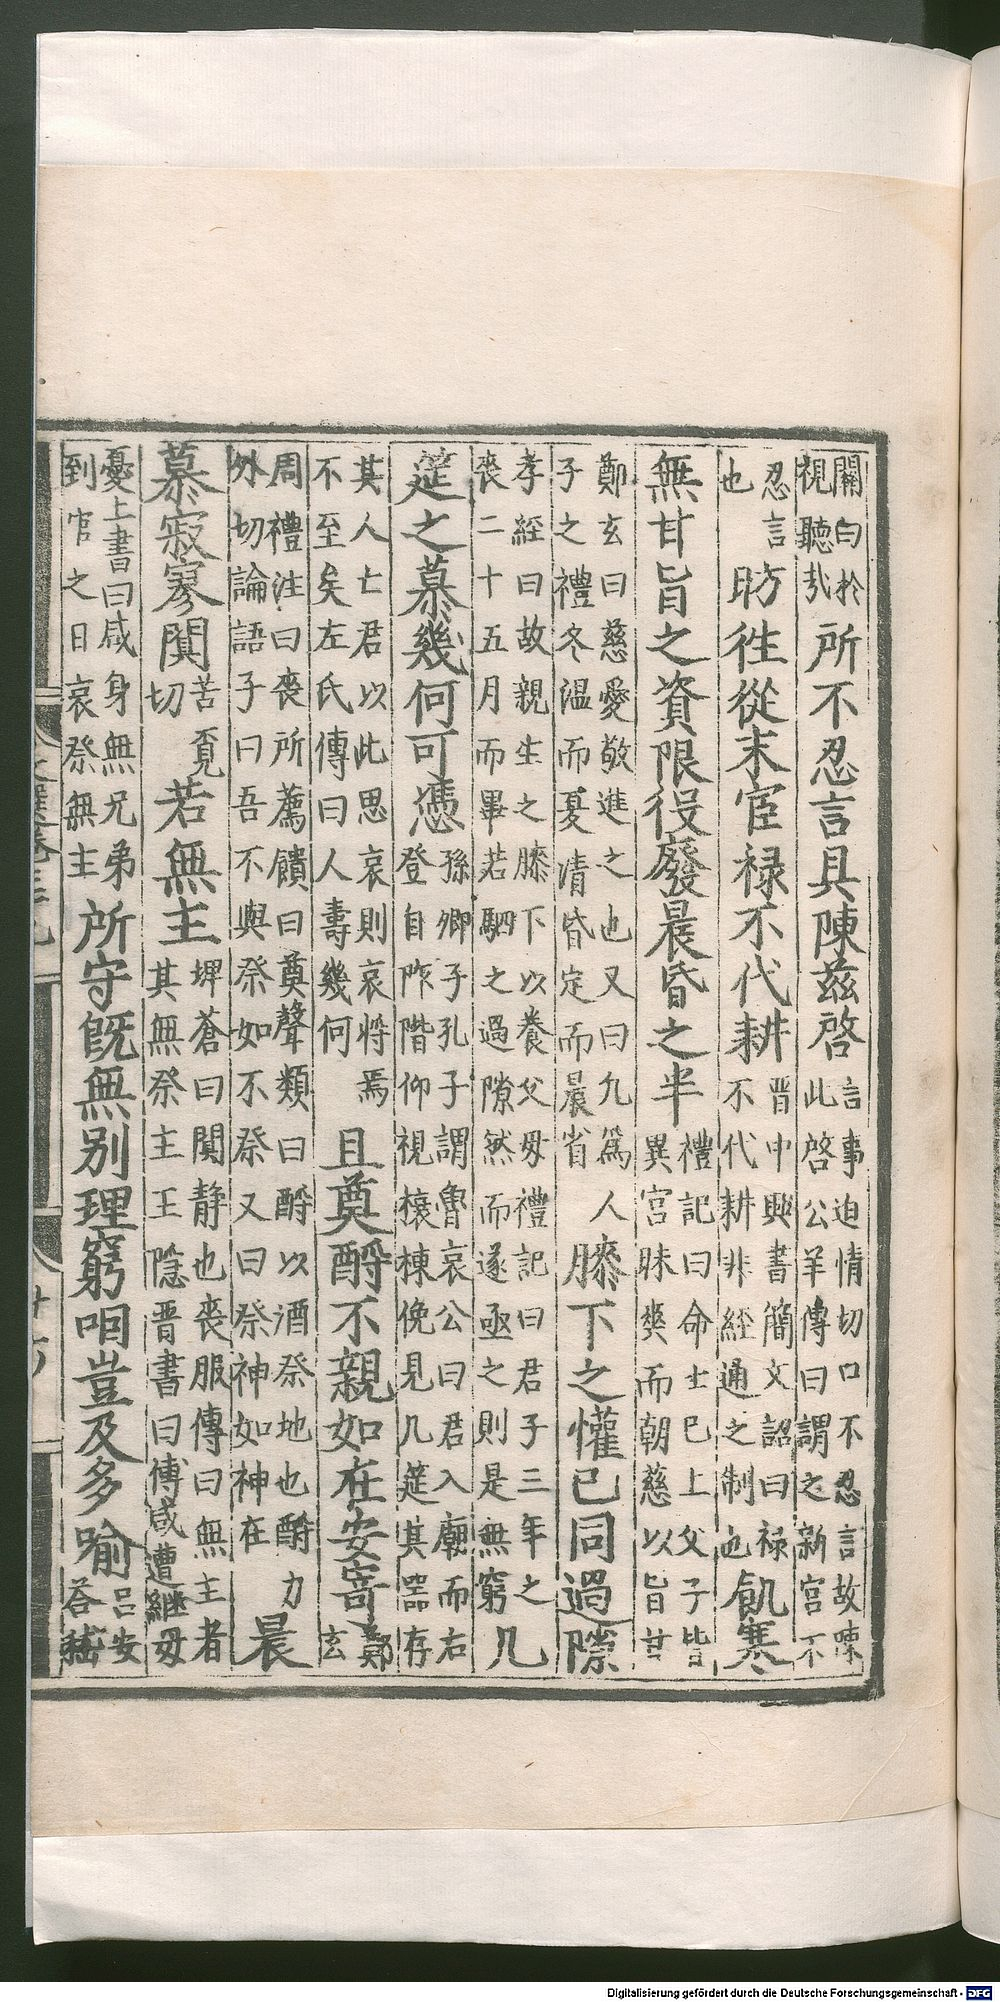 關白於
視聽哉
所不忍言具陳茲啓
言事迫情切口不忍言故陳
此啓公羊傳曰謂之新宮不
忍言
也
昉徃從末宦禄不代耕
晋中興書簡文詔曰禄
不代耕非經通之制也
飢寒
無甘旨之資限役廢晨昏之半
禮記曰命士已上父子皆
異宮昧爽而朝慈以旨甘
鄭玄曰慈愛敬進之也又曰凡爲人
子之禮冬温而夏凊昏定而晨省
膝下之懽已同過隙
孝經曰故親生之膝下以養父母禮記曰君子三年之
喪二十五月而畢若駟之過隙然而遂亟之則是無窮
几
筵之慕幾何可憑
孫卿子孔子謂魯哀公曰君入廟而右
登自阼階仰視榱棟俛見几筵其器存
其人亡君以此思哀則哀將焉
不至矣左氏傳曰人壽幾何
且奠酹不親如在安寄
鄭
玄
周禮注曰喪所薦饋曰奠聲類曰酹以酒祭地也酹力
外切論語子曰吾不與祭如不祭又曰祭神如神在
晨
暮寂寥闃
苦覔
切
若無主
埤蒼曰闃静也喪服傳曰無主者
其無祭主王隱晋書曰傅咸遭繼母
憂上書曰咸身無兄弟
到官之日哀祭無主
所守旣無别理窮咽豈及多喻
呂安
荅嵇
Digitalisierung gefördert durch die Deutsche Forschungsgemeinschaft - DFG